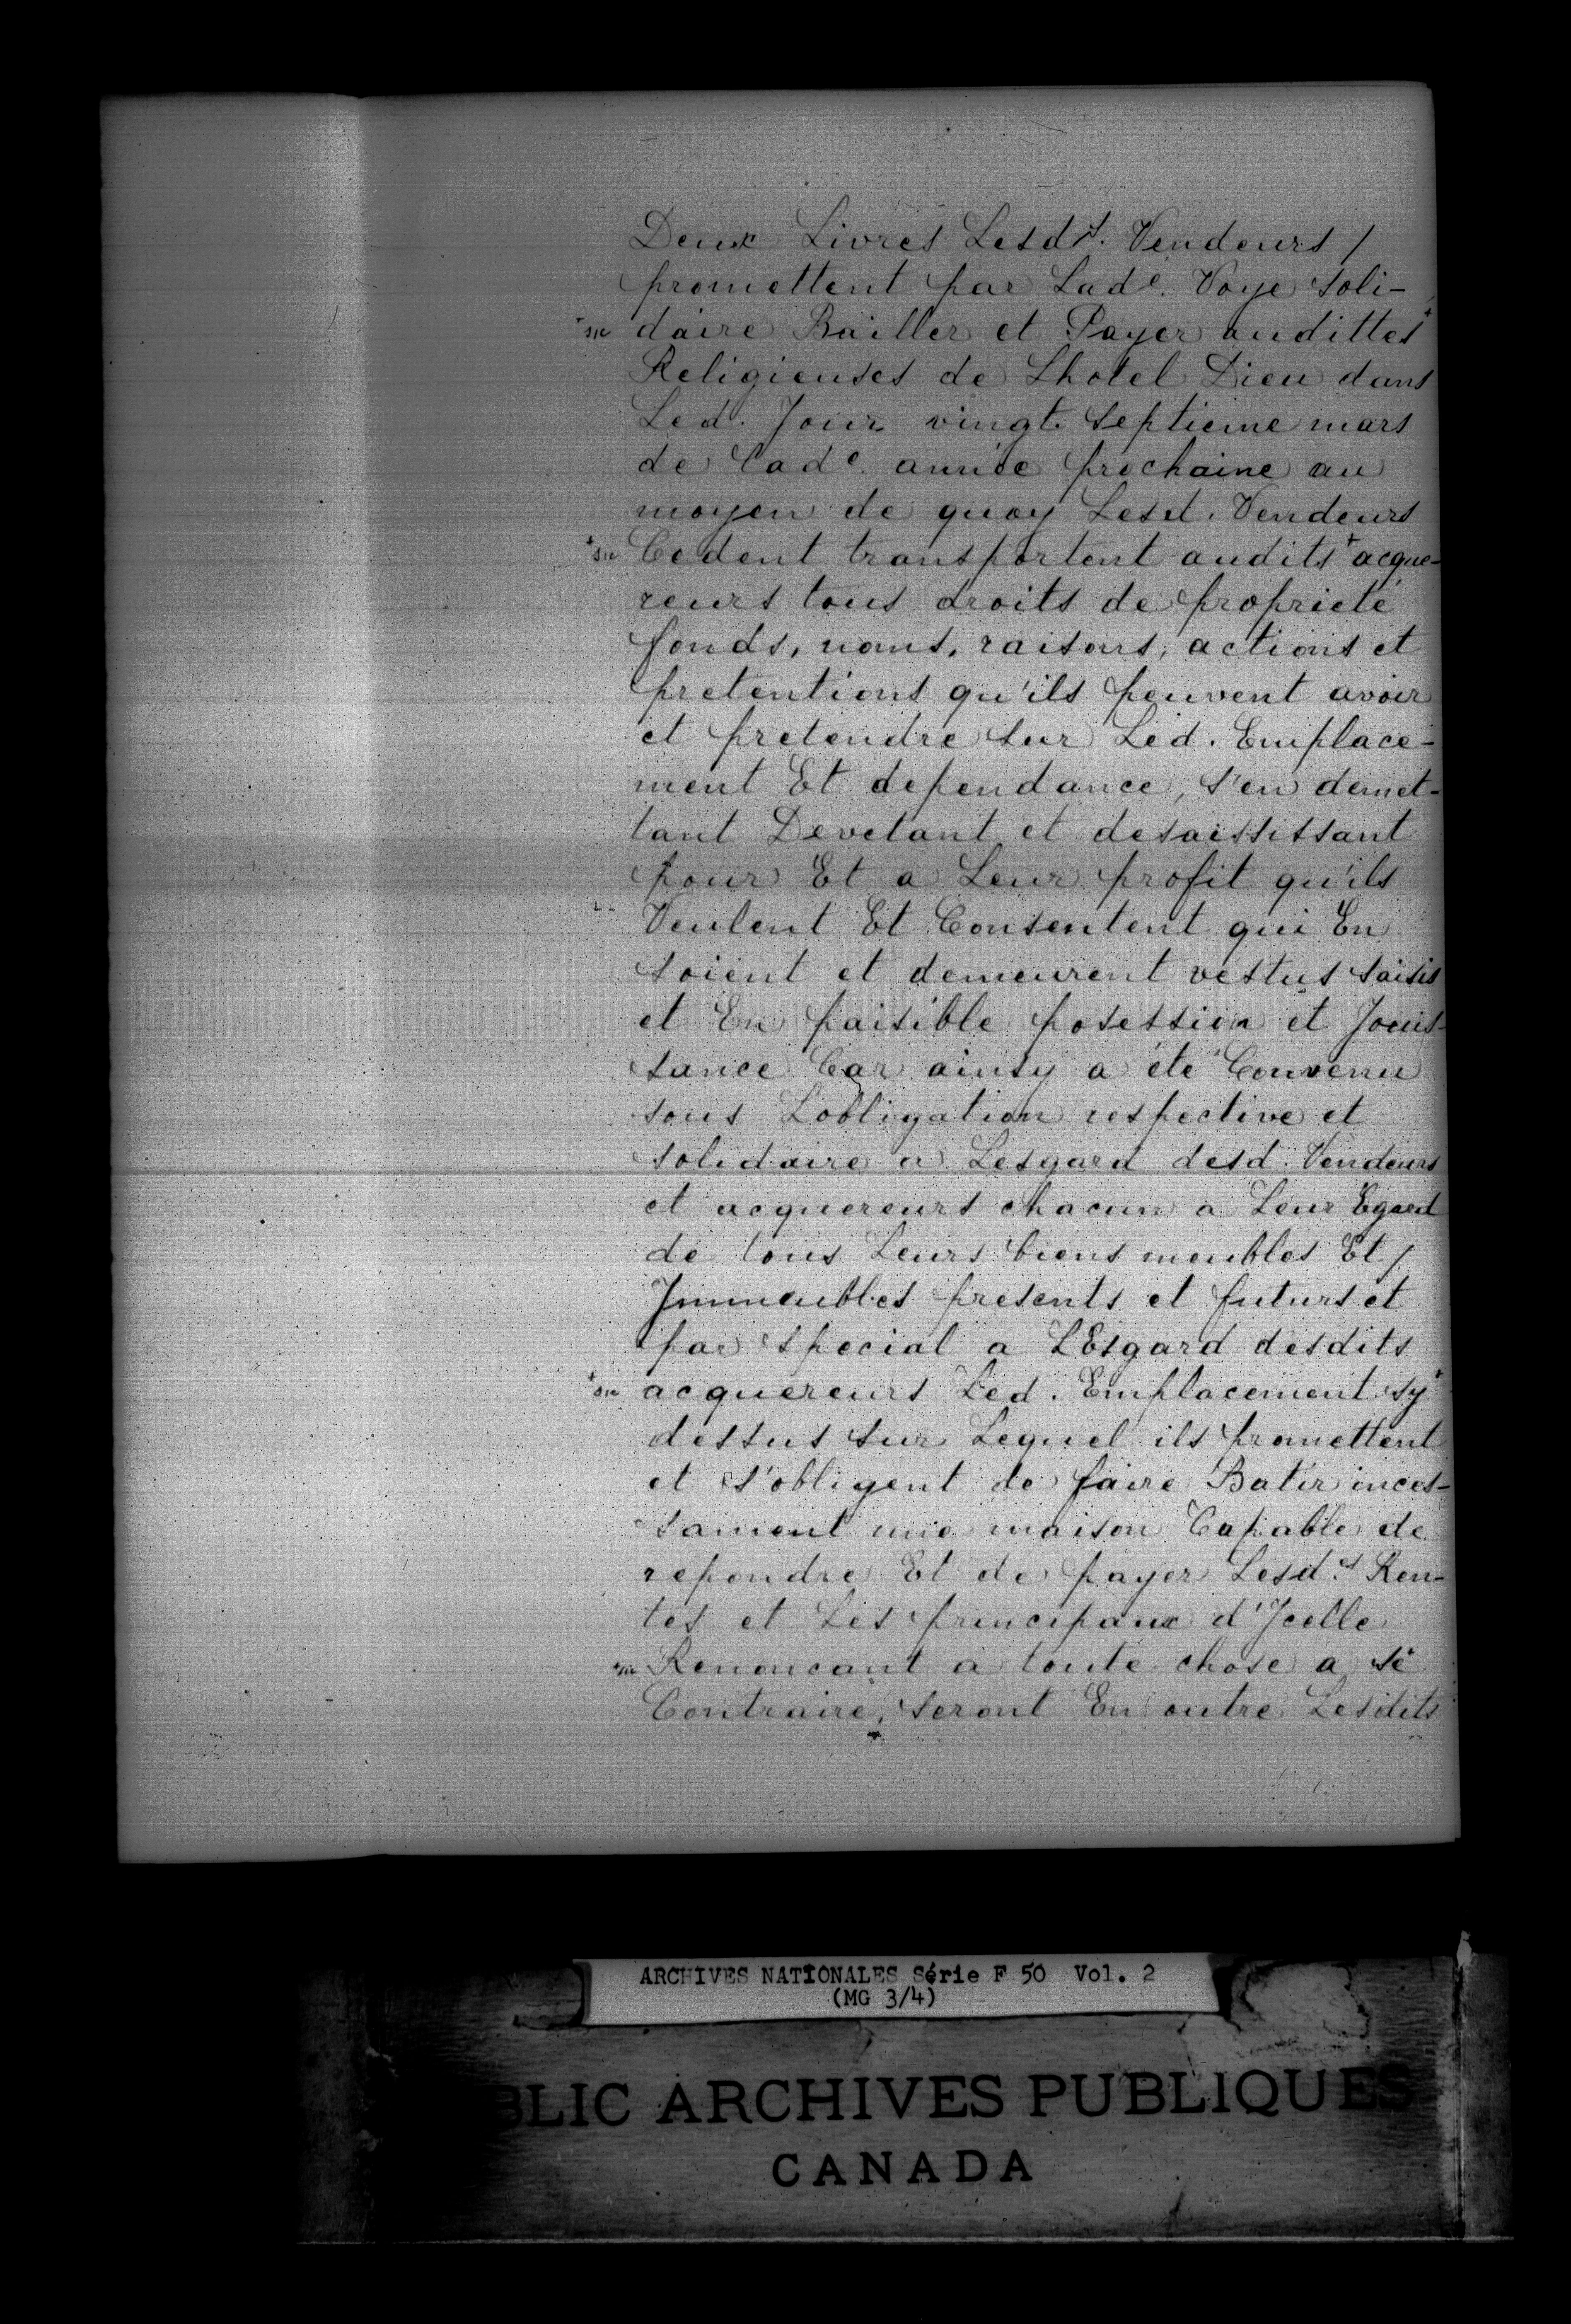 Deux Livres Lesdts. Vendeurs /
promettent par Lade. Voye soli-
+sic daire Bailler et Payer audittes+
Religieuses de Lhotel Dieu dans
Led. Jour vingt septieme mars
de Cade. année prochaine au
moyen de quoy Lesd. Vendeurs
+sic Cedent transportent audits+ acque-
reurs tous droits de proprieté
fonds, noms, raisons, actions et
pretentions qu'ils peuvent avoir
et pretendre sur Led. Emplace-
ment Et dependance, s'en demet-
tant Devetant et desaississant
pour Et a Leur profit qu'ils
Veulent Et Consentent qui En
soient et demeurent vestus saisis
et En paisible posession et Jouis-
sance Car ainsy a été Convenu
sous Lobligation respective et
solidaire a Lesgard desd. Vendeurs
et acquereurs chacun a Leur Egard
de tous Leurs biens meubles Et /
Immeubles presents et futurs et
par special a LEsgard desdits
+sic acquereurs Led. Emplacement sy+
dessus sur Lequel ils promettent
et s'obligent de faire Batir inces-
sament une maison Capable de
repondre Et de payer Lesd.es Ren-
tes et Les principaux d'Jcelle
+sic Renoncant à toute chose a se+
Contraire, seront En outre Lesdits
ARCHIVES NATIONALES Série F 50 Vol. 2
(MG 3/4)
BLIC ARCHIVES PUBLIQUES
CANADA